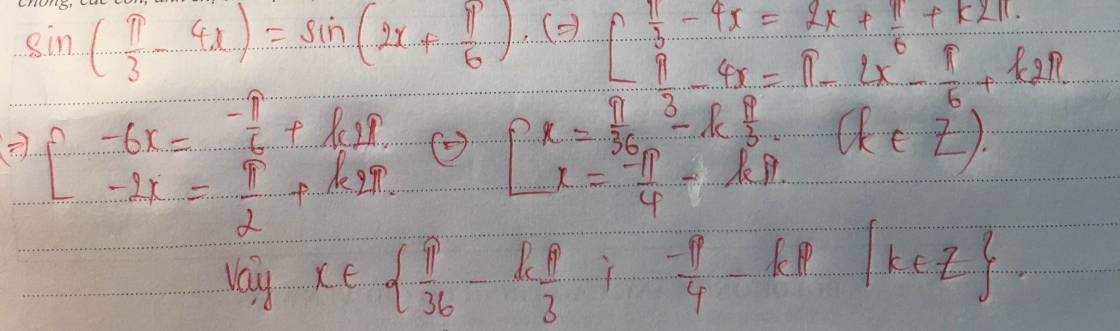 sin(π/3 - 4x) = sin(2x + π/6). (⇒) [ π/3 - 4x = 2x + π/6 + k2π.
π/3 - 4x = π - 2x - π/6 + k2π
(⇒) [ -6x = -π/6 + k2π. (⇔) [ x = π/36 - k π/3. (k ∈ Z).
-2x = π/2 + k2π. x = -π/4 - kπ.
Vậy x ∈ { π/36 - kπ/3 ; -π/4 - kπ | k ∈ Z }.